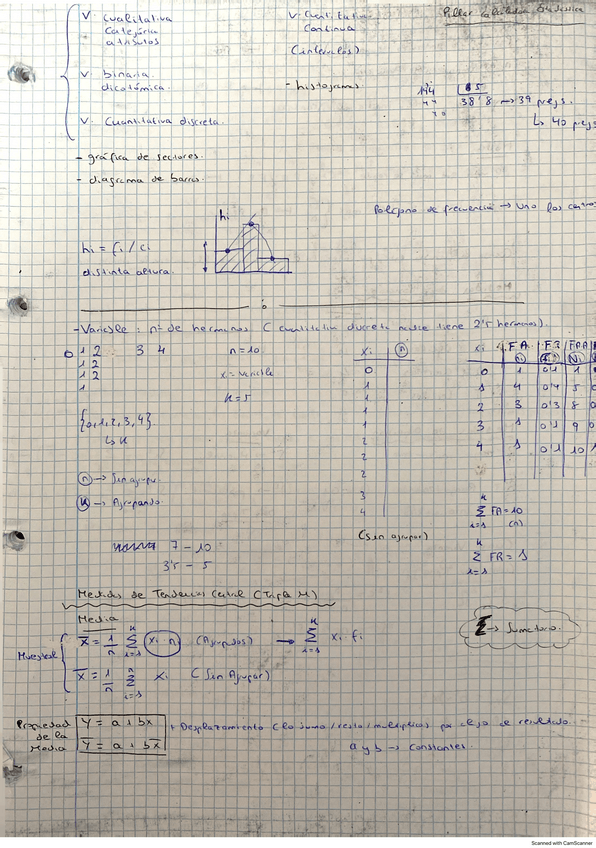 V. Cualitativa
Categórica
atributos
V. binaria.
dicotómica.
V. Cuantitativa discreta.
V. Cuantitativa
Continua
(intervalos)
- histogramas
194 5
44 38'8 → 39 pregs.
40 ↳ 40 pregs
- gráfica de sectores.
- diagrama de barras.
Polígono de frecuencia → Uno los centros
hi
hi = fi / ci
distinta altura.
- Variable: nº de hermanos ( cuantitativa discreta nadie tiene 2'5 hermanos).
0 1 2 3 4
1 2
1 2
1
n = 10.
x = variable
k = 5
{0,1,2,3,4}
↳ k
(n) → Sin agrupar
(k) → Agrupando.
7 - 10
3'5 - 5
xi (n)
0
1
1
1
1
2
2
2
3
4
(sin agrupar)
xi F.A. F.R FAA
ni fi Ni
0 1 0'1 1
1 4 0'4 5
2 3 0'3 8
3 1 0'1 9
4 1 0'1 10
k
Σ FA = 10
i=1 (n)
k
Σ FR = 1
i=1
Medidas de Tendencia Central (Tripe M)
Media
Muestral
x̄ = 1/n Σ xi · ni (Agrupados) → Σ xi fi
x̄ = 1/n Σ xi ( Sin Agrupar)
Σ → Sumatorio.
Propiedad de la Media
Y = a + bx
Ȳ = a + bx̄
+ Desplazamiento (lo sumo/resto/multiplico por el resultado.
a y b → Constantes.
Scanned with CamScanner